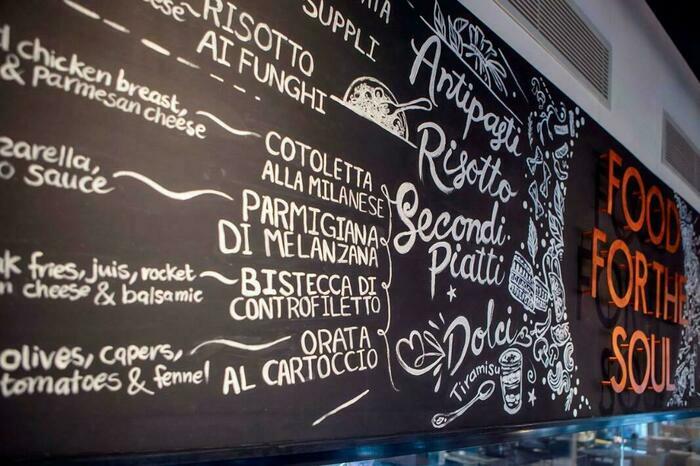 cheese
chicken breast,
& Parmesan cheese
sauce
fries, juis, rocket
cheese & balsamic
olives, capers,
tomatoes & fennel
SUPPLI
RISOTTO
AI FUNGHI
COTOLETTA
ALLA MILANESE
PARMIGIANA
DI MELANZANA
BISTECCA DI
CONTROFILETTO
ORATA
AL CARTOCCIO
Antipasti
Risotto
Secondi
Piatti
Dolci
Tiramisu
FOOD
FOR THE
SOUL